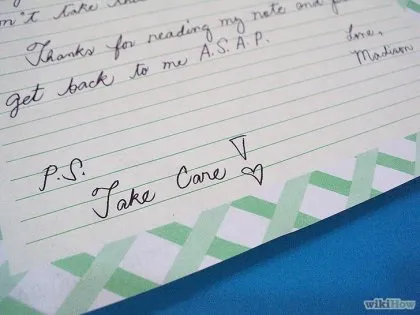 n't take tha
Thanks for reading my note and p
get back to me A.S.A.P.
Love,
Madison
P.S.
Take Care
wikiHow